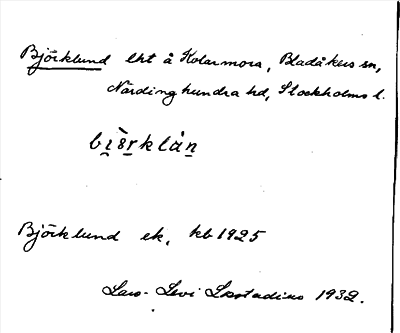 Björklund lht å Kolarmora, Bladåkers sn,
Närdinghundra hd, Stockholms l.
Björklund ek, kb 1925
Lars-Levi Læstadius 1932.